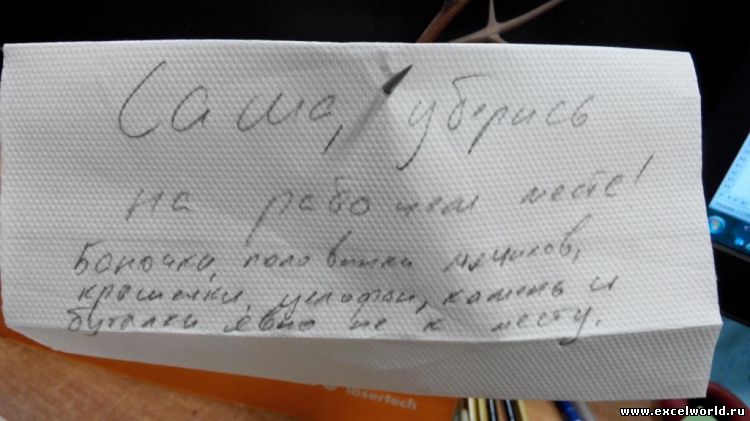 Саша, уберись
на рабочем месте!
Баночки, половинки мячиков,
крышечки, целофан, камень и
бутылки явно не к месту.
lasertech
www.excelworld.ru